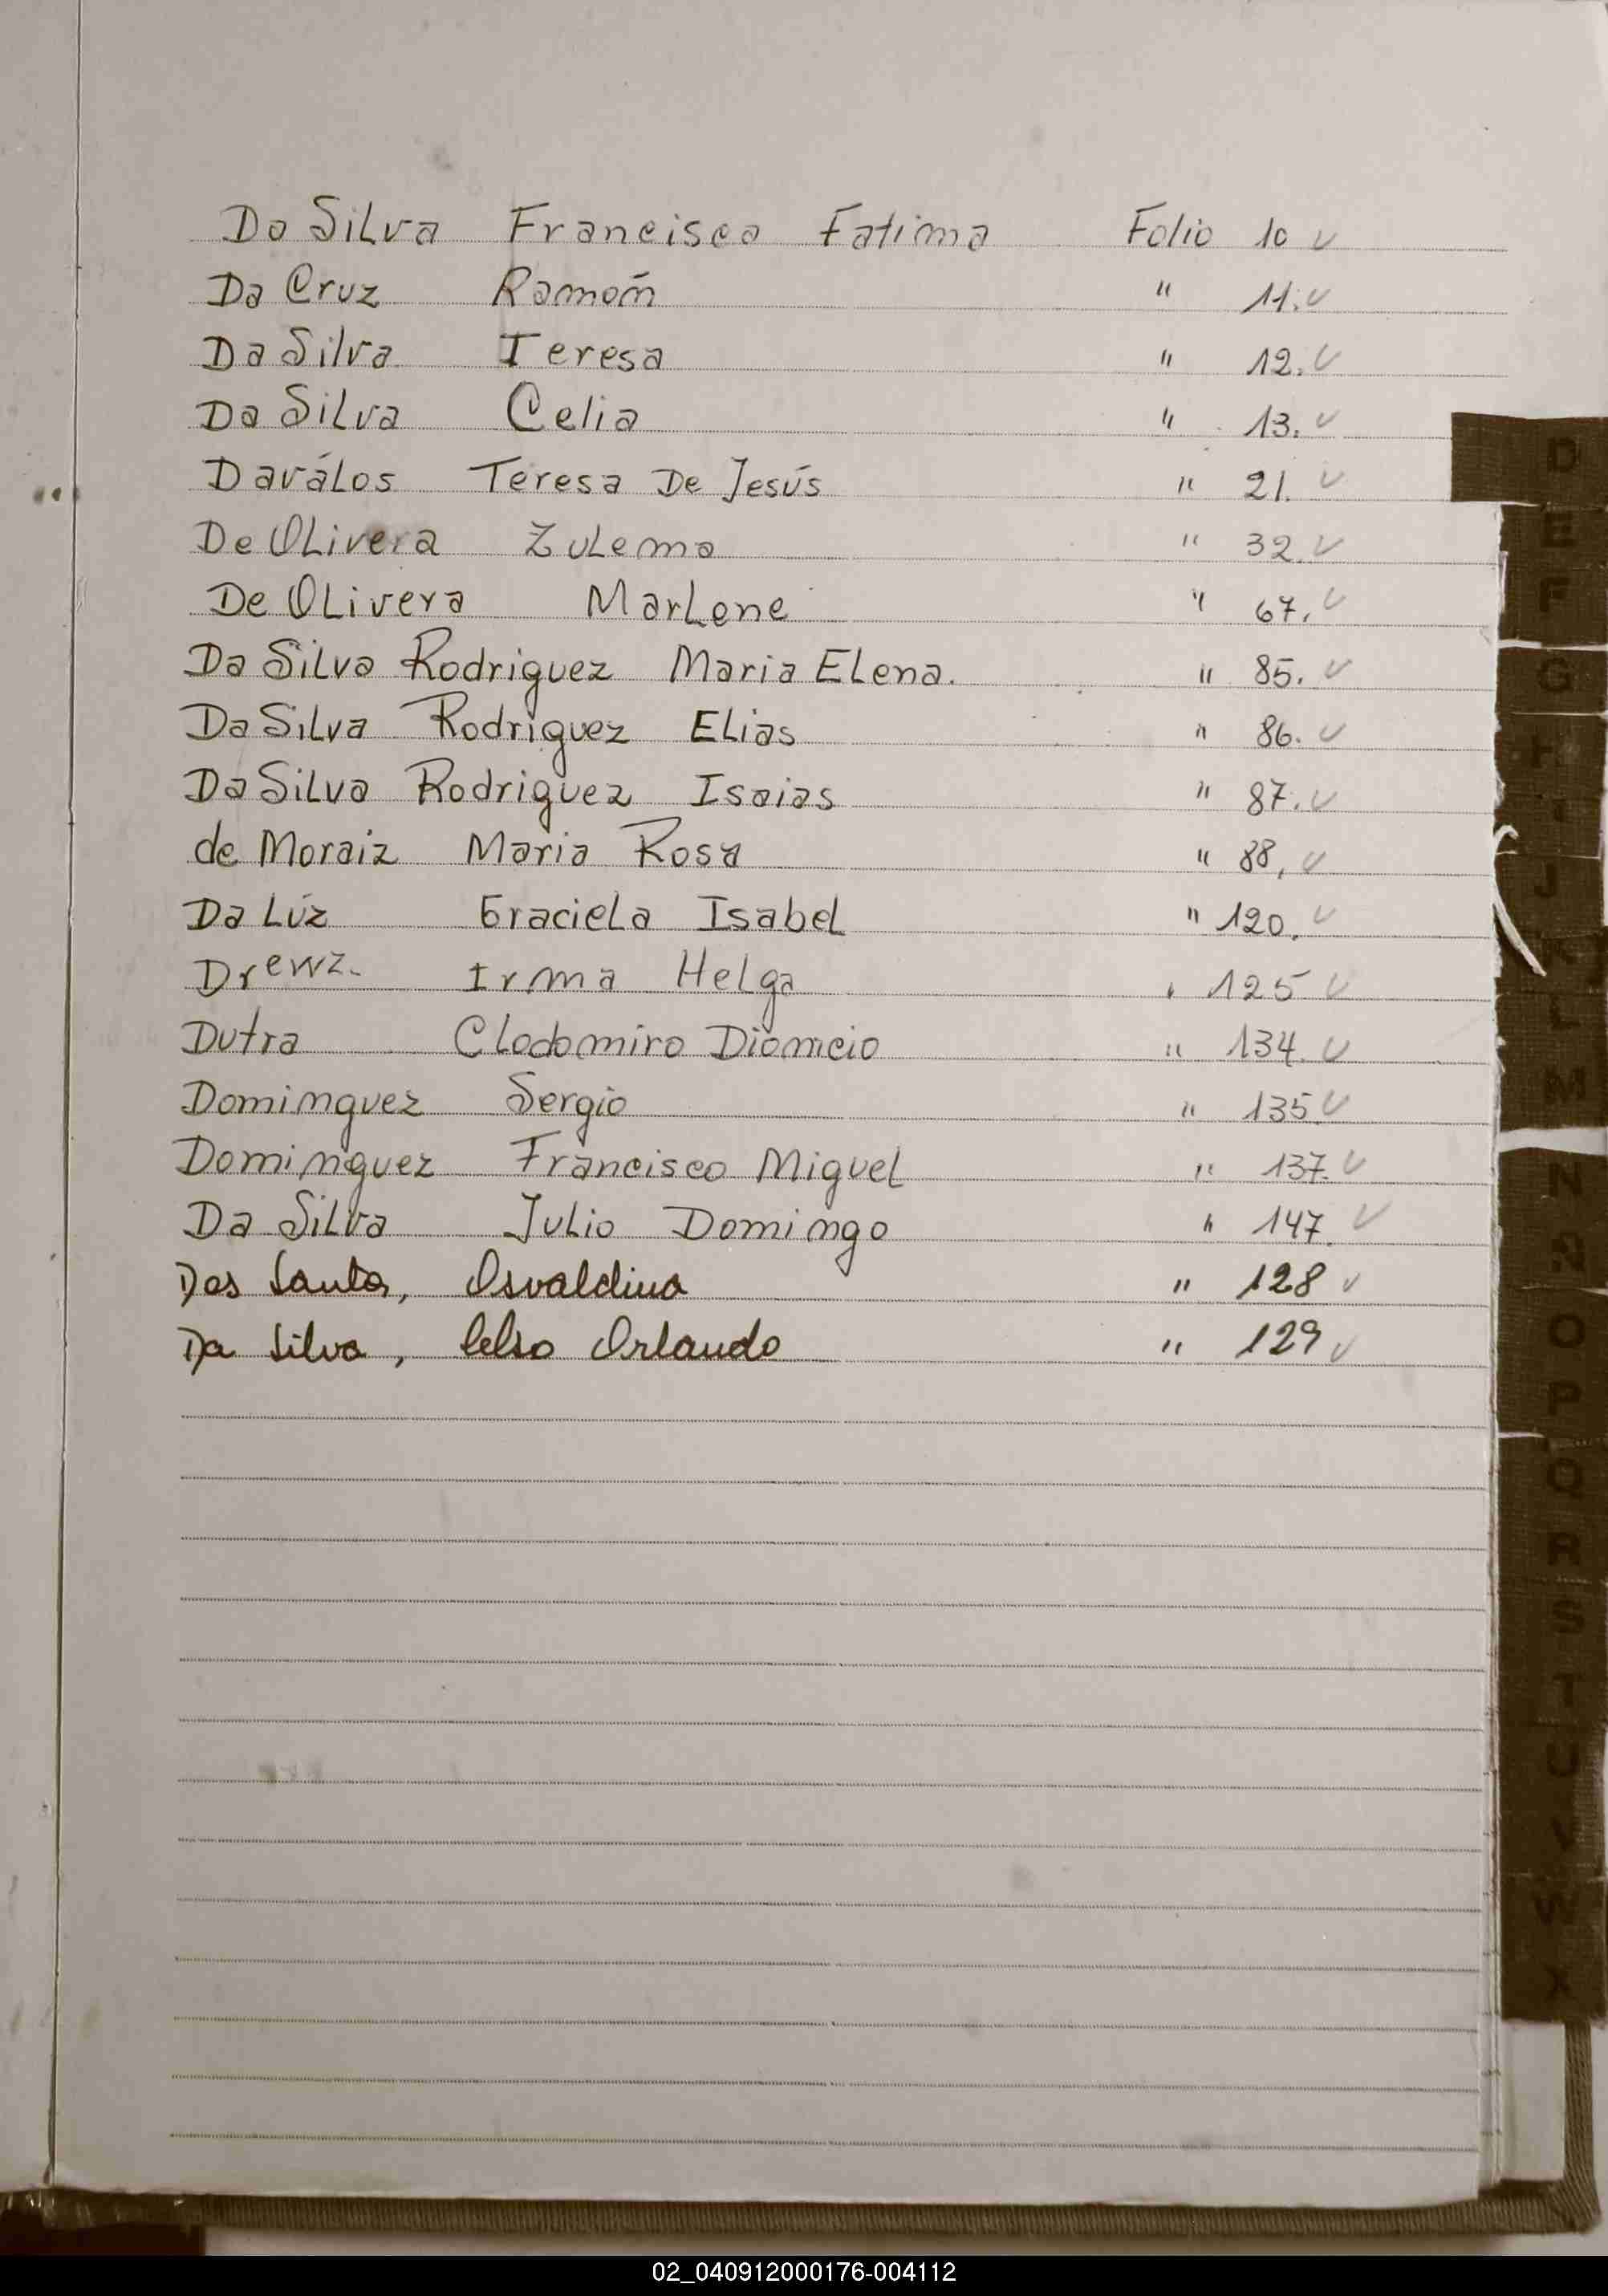 Da Silva Francisco Fatima Folio 10 ✓
Da Cruz Ramón " 11. ✓
Da Silva Teresa " 12. ✓
Da Silva Celia " 13. ✓
Daválos Teresa De Jesús " 21. ✓
De Olivera Zulema " 32. ✓
De Olivera Marlene " 67. ✓
Da Silva Rodriguez Maria Elena. " 85. ✓
Da Silva Rodriguez Elias " 86. ✓
Da Silva Rodriguez Isaias " 87. ✓
de Moraiz Maria Rosa " 88, ✓
Da Lúz Graciela Isabel " 120. ✓
Drewz. Irma Helga " 125 ✓
Dutra Clodomiro Dionicio " 134. ✓
Dominguez Sergio " 135 ✓
Dominguez Francisco Miguel " 137. ✓
Da Silva Julio Domingo " 147. ✓
Dos Santos, Osvaldina " 128 ✓
Da Silva, Celso Orlando " 129 ✓
D
E
F
G
H
I
J
K
L
M
N
Ñ
O
P
Q
R
S
T
U
V
W
X
02_040912000176-004112